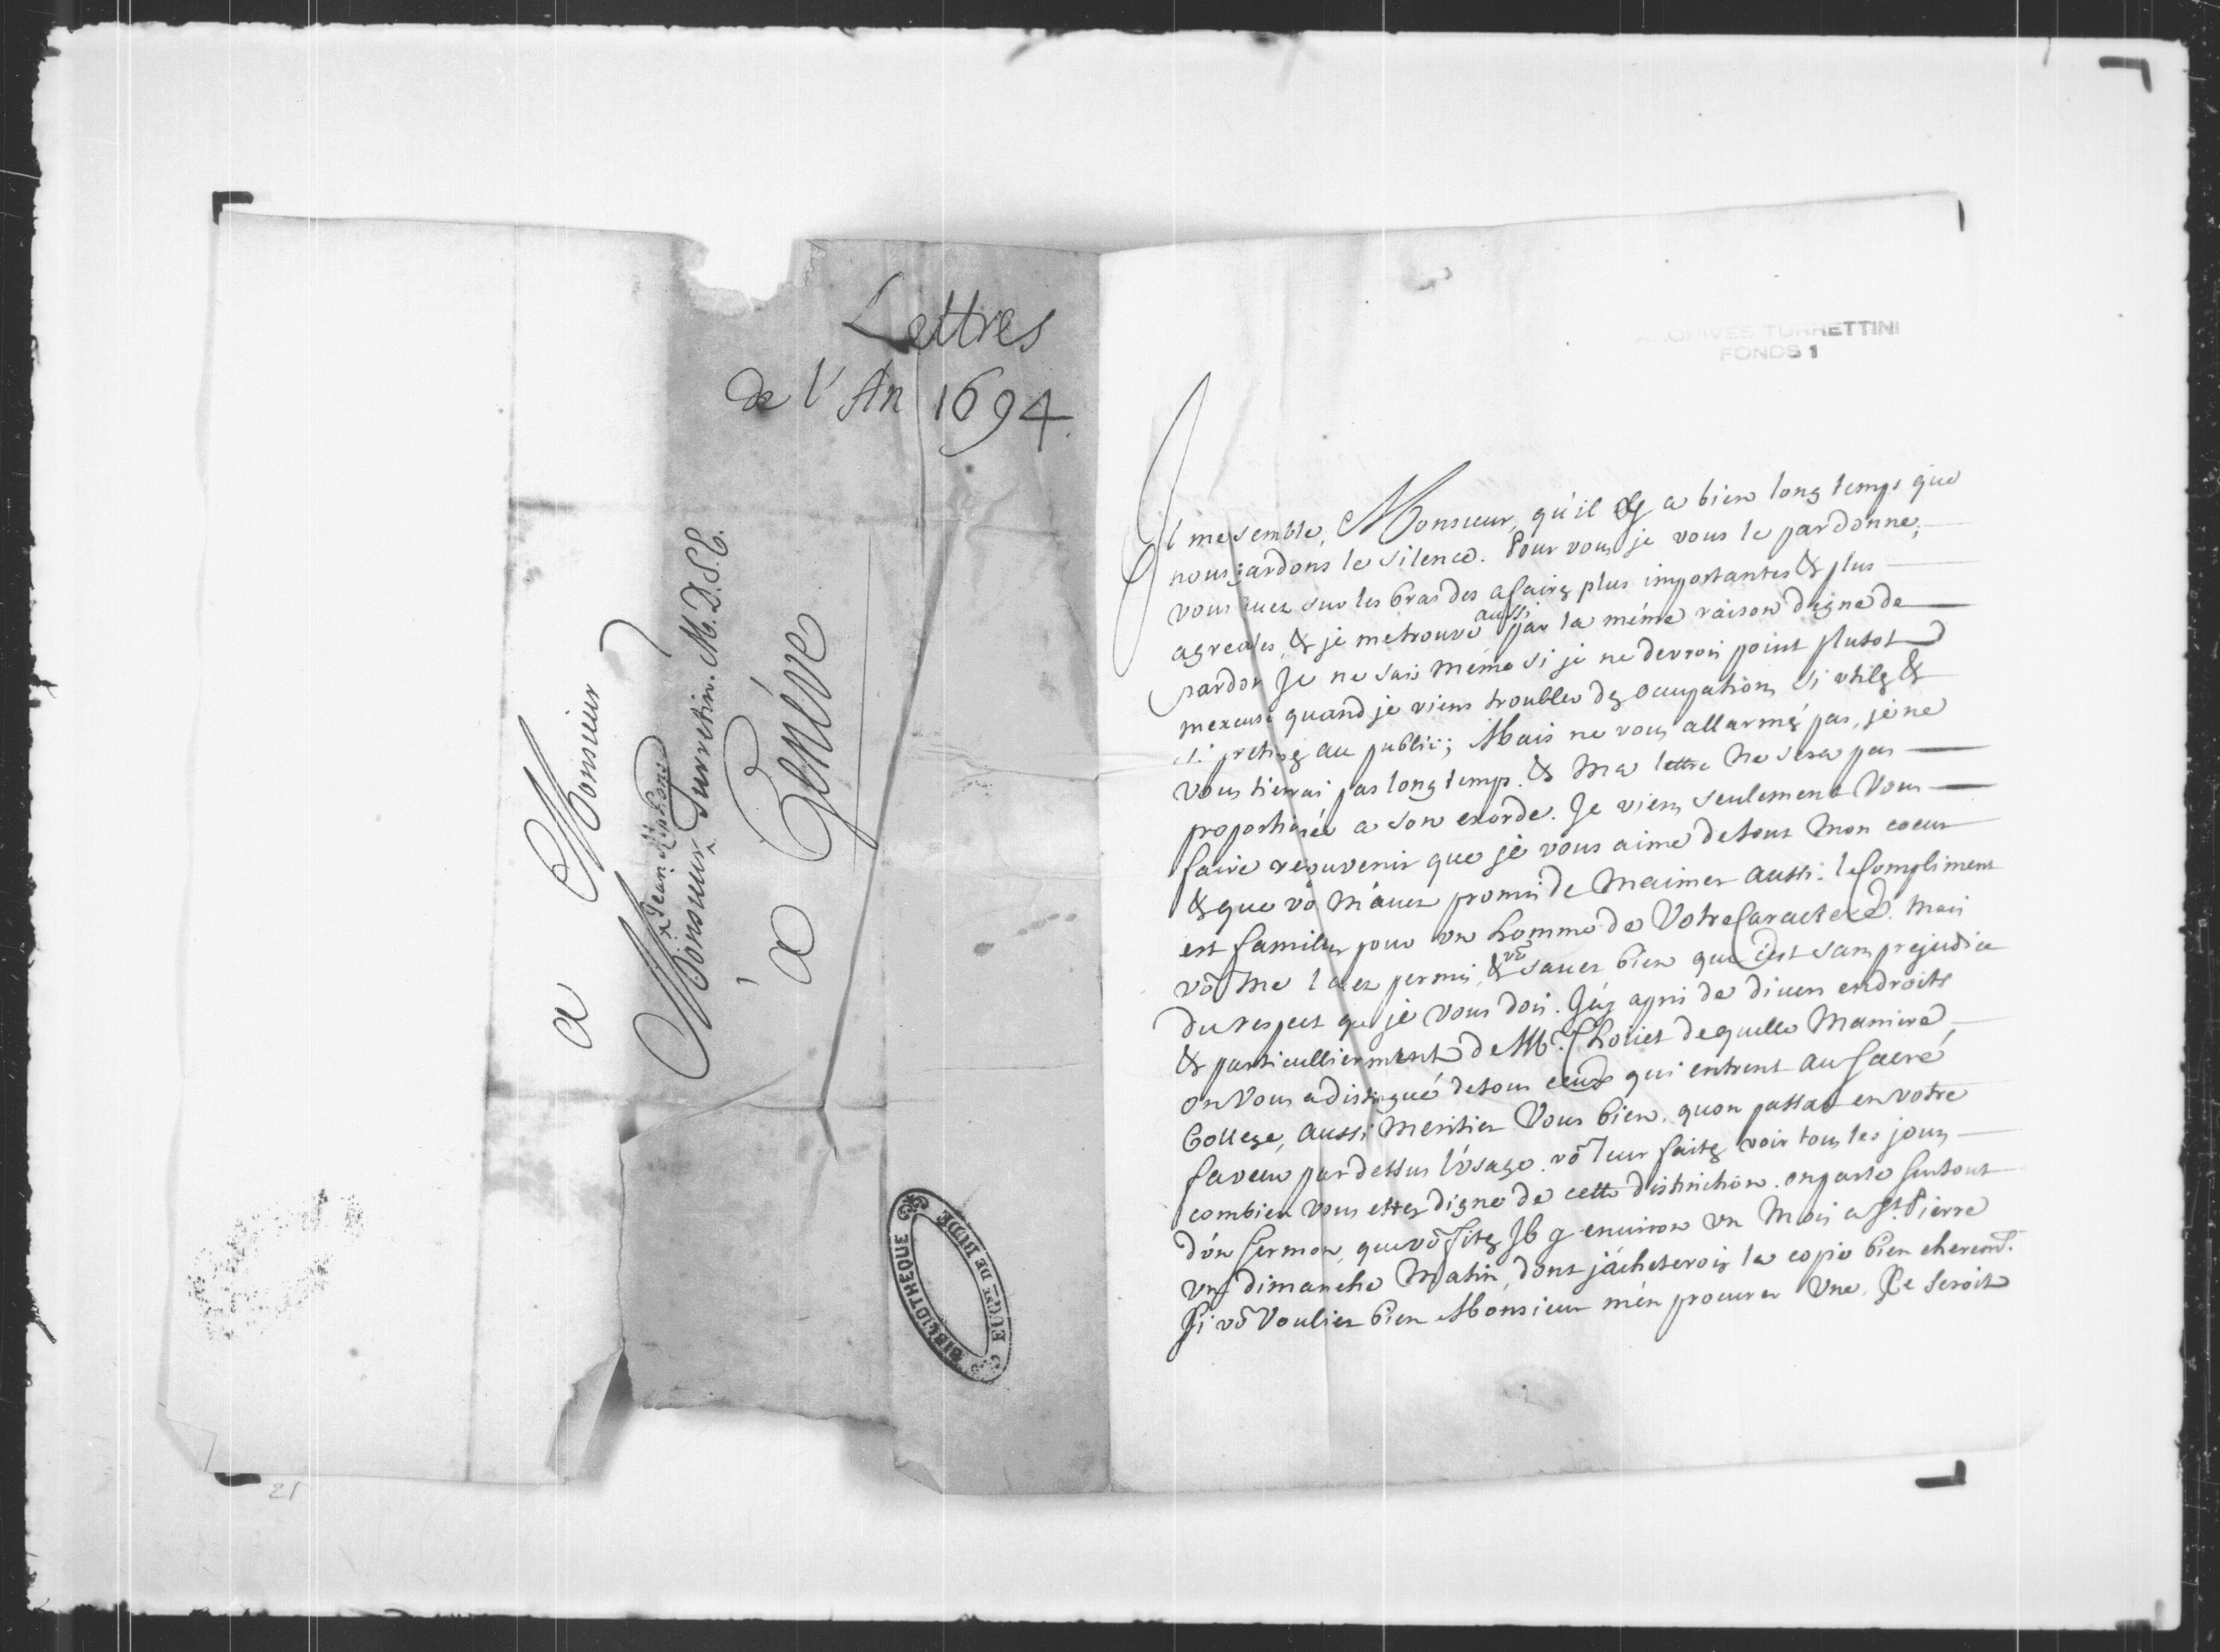 Lettres
de l'An 1694.
a Monsieur
Jean Alphonse
Monsieur Turretin. M. D. S. E.
à Genéve
BIBLIOTHEQUE
EUGNE DE BUDE
21
ARCHIVES TURRETTINI
FONDS 1
Il me semble, Monsieur, qu'il y a bien long temps que
nous gardons le silence. Pour vous je vous le pardonne,
vous avez sur les bras des afaires plus importantes & plus
agreables, & je me trouve aussi par la méme raison digne de
pardon Je ne sais méme si je ne devrois point plutot
m'excuse quand je viens troubler des occupations si utiles &
si pretieuses au public; Mais ne vous allarmés pas, je ne
vous tiendrai pas long temps. & Ma lettre Ne sera pas
proportionée a son exorde. Je viens seulement Vous
faire resouvenir que je vous aime de tout Mon coeur
& que võ M'avez promis de M'aimer aussi: le Compliment
est familier pour un homme de Votre Caractere. Mais
võ Me l'avez permis, & võ savez bien que c'est sans prejudice
du respect que je vous dois. J'ay apris de divers endroits
& particullierment de Mr. Choliet de quelle Maniere
on Vous a distingué de tous ceux qui entrent au sacré
College, aussi Meritiez Vous bien. quon passat en votre
faveur par dessus l'usage. võ leur faites voir tous les jours
combien vous ettes digne de cette distinction. on parle surtout
d'un sermon, que võ fites Il y environ un Mois a St. Pierre
un dimanche Matin, dont j'acheterois la copie bien cherement.
Si võ Vouliez bien Monsieur m'en procurer Une, Ce seroit